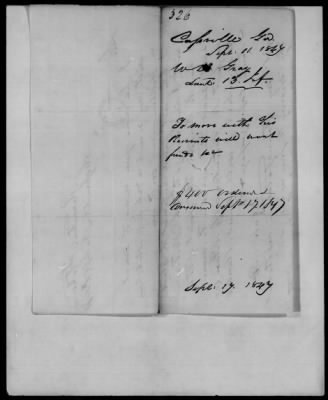 326
Cassville Ga
Sept. 11 1847
W Gray
Lieut 13 Inf.
To move with his
Recruits will want
funds &c
$400 ordered
Answered Sept 17 1847
Sept. 17. 1847